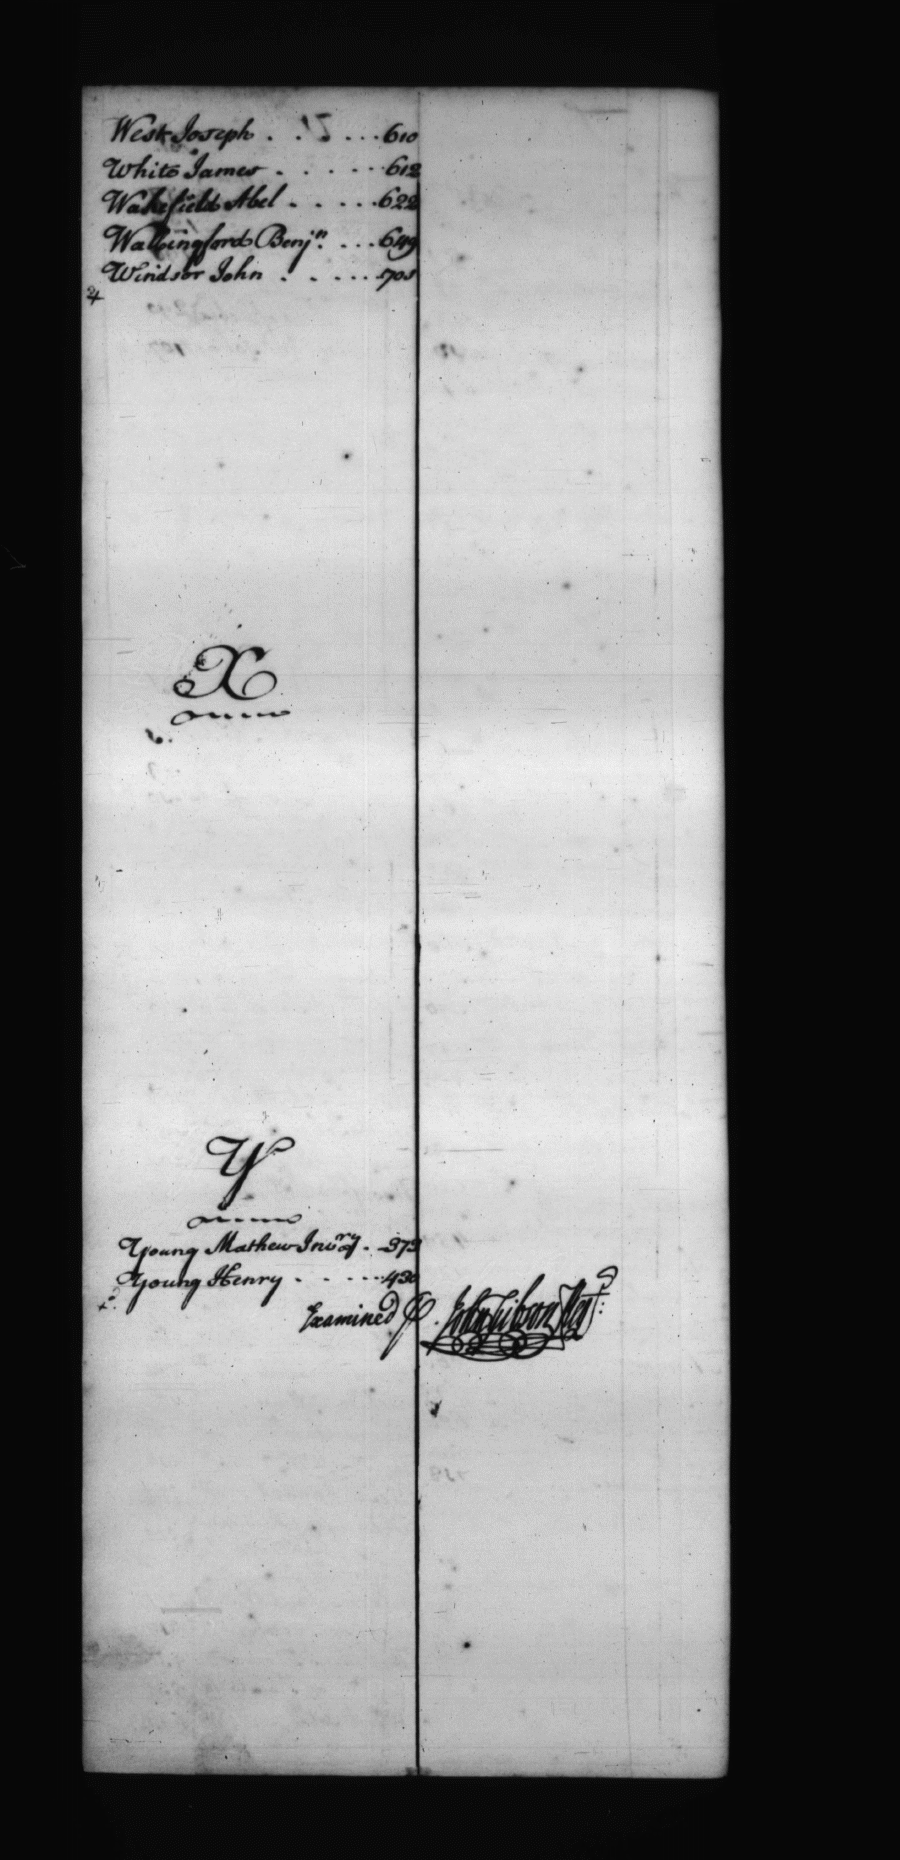 West Joseph . . . . . 610
White James . . . . . 612
Wakefield Abel . . . . . 622
Wallingford Benjn. . . . 649
Windsor John . . . . . 701
X
Y
Young Mathew Invry. . 373
Young Henry . . . . . 430
Examined ⅌. John Gibson Regr: